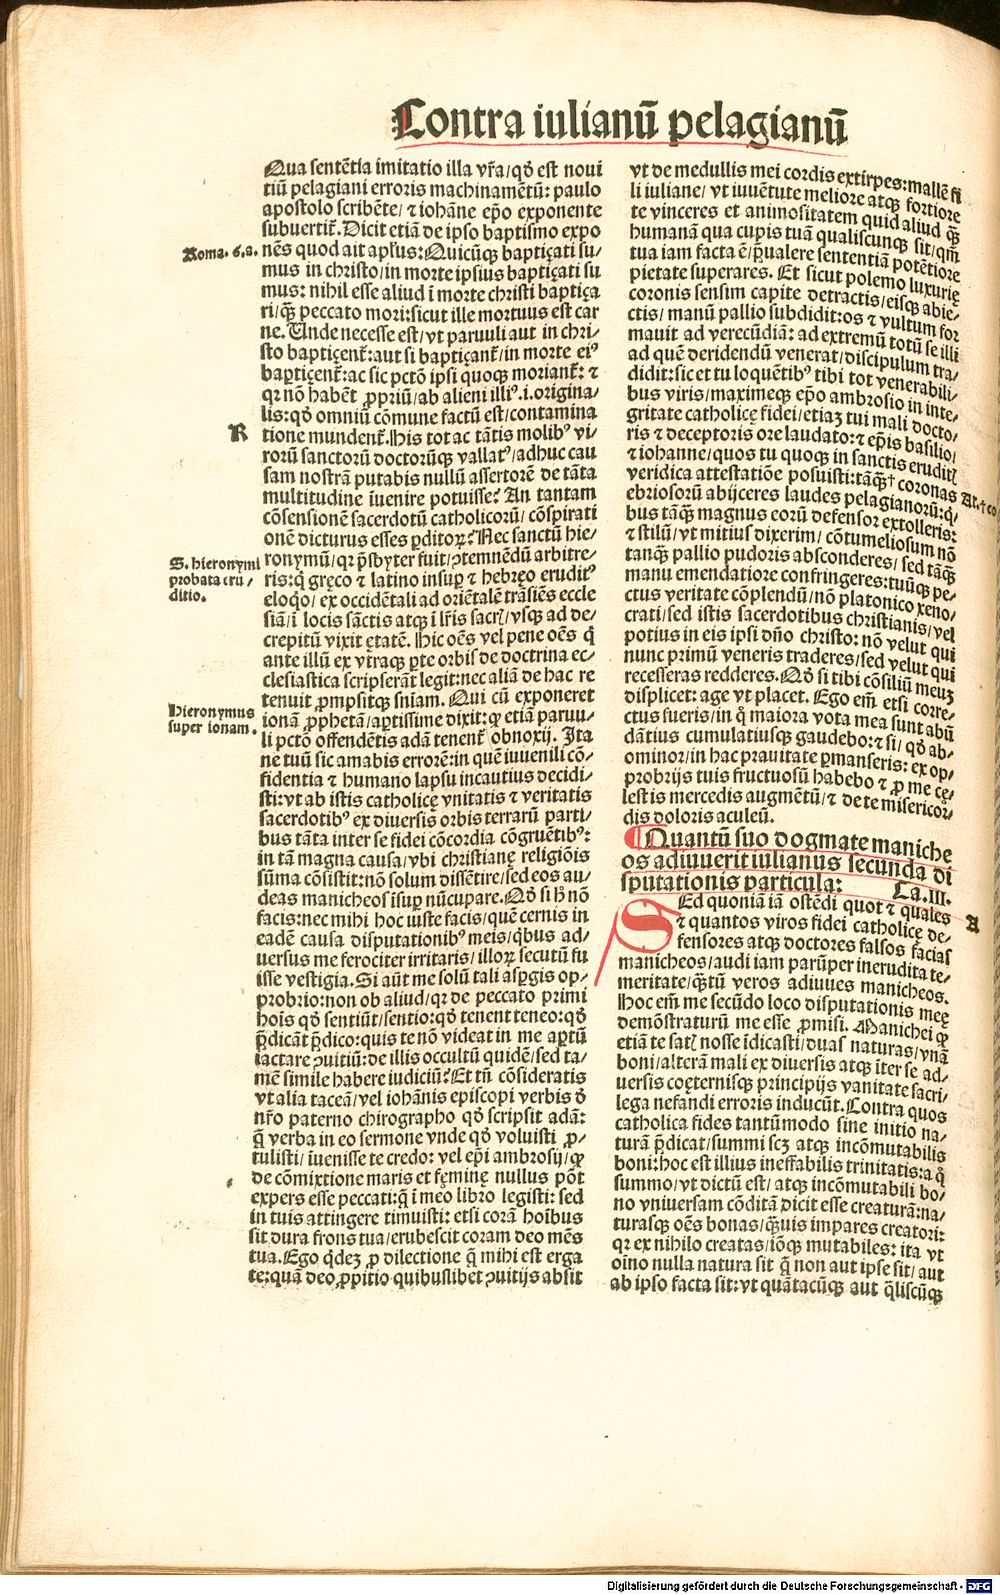 Contra iulianū pelagianū
Qua sentētia imitatio illa vr̄a/qđ est noui
tiū pelagiani erroris machinamētū: paulo
apostolo scribēte/ ⁊ iohāne ep̄o exponente
subuertit̄. Dicit etiā de ipso baptismo expo
Roma. 6.a.
nēs quod ait apl̄us: Quicūqꝫ baptiçati su/
mus in christo/in morte ipsius baptiçati su
mus: nihil esse aliud ī morte christi baptiça
ri/qꝫ peccato mori: sicut ille mortuus est car
ne. Unde necesse est/vt paruuli aut in chri/
sto baptiçent̄: aut si baptiçant̄/in morte ei⁹
baptiçent̄: ac sic pctō ipsi quoqꝫ moriant̄: ⁊
qꝛ nō habēt ꝓpriū/ab alieni illi⁹.i.origina/
lis: qđ omniū cōmune factū est/contamina
R
tione mundent̄. His tot ac tātis molib⁹ vi/
rorū sanctorū doctorūqꝫ vallat⁹/adhuc cau
sam nostrā putabis nullū assertorē de tāta
multitudine īuenire potuisse? An tantam
cōsensionē sacerdotū catholicorū/ cōspirati
onē dicturus esses ꝑditoꝝ? Nec sanctū hie/
S. hieronymi
probata eru/
ditio.
ronymū/qꝛ p̄sbyter fuit/ꝯtemnēdū arbitre/
ris: q̄ gręco ⁊ latino insuꝑ ⁊ hebręo erudit⁹
eloq̇o/ ex occidētali ad oriētalē trāsiēs eccle
siā/ī locis sāctis atqꝫ ī lr̄is sacꝝ/vsqꝫ ad de/
crepitū vixit ętatē. Hic oēs vel pene oēs q̇
ante illū ex vtraqꝫ ꝑte orbis de doctrina ec/
clesiastica scripserāt legit: nec aliā de hac re
tenuit ꝓmpsitqꝫ sniam. Qui cū exponeret
Hieronymus
super ionam.
ionā ꝓphetā/aꝑtissime dixit: ꝙ etiā paruu/
li pctō offendētis adā tenent̄ obnoxij. Ita
ne tuū sic amabis errorē: in quē iuuenili cō/
fidentia ⁊ humano lapsu incautius decidi/
sti: vt ab istis catholicę vnitatis ⁊ veritatis
sacerdotib⁹ ex diuersis orbis terrarū parti/
bus tāta inter se fidei cōcordia cōgruētib⁹:
in tā magna causa/vbi christianę religiōis
sūma cōsistit: nō solum dissētire/sed eos au/
deas manicheos īsuꝑ nūcupare. Qđ si h̄ nō
facis: nec mihi hoc iuste facis/quē cernis in
eadē causa disputationib⁹ meis/q̇bus ad/
uersus me ferociter irritaris/ illoꝝ secutū fu
isse vestigia. Si aūt me solū tali asꝑgis op/
probrio: non ob aliud/qꝛ de peccato primi
hoīs qđ sentiūt/sentio: qđ tenent teneo: qđ
p̄dicāt p̄dico: quis te nō videat in me aꝑtū
iactare ꝯuitiū: de illis occultū quidē/sed ta/
mē simile habere iudiciū? Et tn̄ cōsideratis
vt alia taceā/vel iohānis episcopi verbis đ
nr̄o paterno chirographo qđ scripsit adā:
q̄ verba in eo sermone vnde qđ voluisti ꝓ/
tulisti/ īuenisse te credo: vel ep̄i ambrosij/ꝙ
de cōmixtione maris et fęminę nullus pōt
expers esse peccati: q̄ ī meo libro legisti: sed
in tuis attingere timuisti: etsi corā hoībus
sit dura frons tua/erubescit coram deo mēs
tua. Ego q̇dēꝫ ꝓ dilectione q̄ mihi est erga
te: quā deo ꝓpitio quibuslibet ꝯuitijs absit
vt de medullis mei cordis extirpes: mallē fi
li iuliane/ vt iuuētute meliore atqꝫ fortiore
te vinceres et animositatem quid aliud qꝫ
humanā qua cupis tuā qualiscunqꝫ sit/qm̄
tua iam facta ē/p̄ualere sententiā potētiore
pietate superares. Et sicut polemo luxurię
coronis sensim capite detractis/eisqꝫ abie/
ctis/ manū pallio subdidit: os ⁊ vultum for
mauit ad verecūdiā: ad extremū totū se illi
ad quē deridendū venerat/discipulum tra/
didit: sic et tu loquētib⁹ tibi tot venerabili/
bus viris/maximeqꝫ ep̄o ambrosio in inte/
gritate catholicę fidei/etiaꝫ tui mali docto/
ris ⁊ deceptoris ore laudato: ⁊ ep̄is basilio/
⁊ iohanne/quos tu quoqꝫ in sanctis eruditꝭ
veridica attestatiōe posuisti: tāqꝫ† coronas
Al.†co
ebriosorū abijceres laudes pelagianorū: q̇/
bus tāqꝫ magnus eorū defensor extolleris:
⁊ stilū/ vt mitius dixerim/ cōtumeliosum nō
tanqꝫ pallio pudoris absconderes/ sed tāqꝫ
manu emendatiore confringeres: tuūqꝫ pe/
ctus veritate cōplendū/nō platonico xeno/
crati/sed istis sacerdotibus christianis/vel
potius in eis ipsi dn̄o christo: nō velut qui
nunc primū veneris traderes/sed velut qui
recesseras redderes. Qđ si tibi cōsiliū meuꝫ
displicet: age vt placet. Ego em̄ etsi corre/
ctus fueris/in q̇ maiora vota mea sunt abū
dātius cumulatiusqꝫ gaudebo: ⁊ si/ qđ ab/
ominor/in hac prauitate ꝑmanseris: ex op/
probrijs tuis fructuosū habebo ⁊ ꝓ me cę/
lestis mercedis augmētū/⁊ de te misericor/
dis doloris aculeū.
¶Quantū suo dogmate maniche
os adiuuerit iulianus secunda di
sputationis particula: Ca.III.
SEd quoniā iā ostēdi quot ⁊ quales
A
⁊ quantos viros fidei catholicę de/
fensores atqꝫ doctores falsos facias
manicheos/audi iam parūper inerudita te/
meritate/qꝫtū veros adiuues manicheos.
Hoc em̄ me secūdo loco disputationis meę
demōstraturū me esse ꝓmisi. Manichei ꝙ
etiā te satꝭ nosse īdicasti/duas naturas/vnā
boni/alterā mali ex diuersis atqꝫ īter se ad/
uersis coęternisqꝫ principijs vanitate sacri/
lega nefandi erroris inducūt. Contra quos
catholica fides tantūmodo sine initio na/
turā p̄dicat/summi scꝫ atqꝫ incōmutabilis
boni: hoc est illius ineffabilis trinitatis: a q̇
summo/vt dictū est/ atqꝫ incōmutabili bo/
no vniuersam cōditā dicit esse creaturā: na/
turasqꝫ oēs bonas/qꝫuis impares creatori:
qꝛ ex nihilo creatas/iōqꝫ mutabiles: ita vt
oīno nulla natura sit q̄ non aut ipse sit/ aut
ab ipso facta sit: vt quātacūqꝫ aut q̄liscūqꝫ
Digitalisierung gefördert durch die Deutsche Forschungsgemeinschaft - DFG